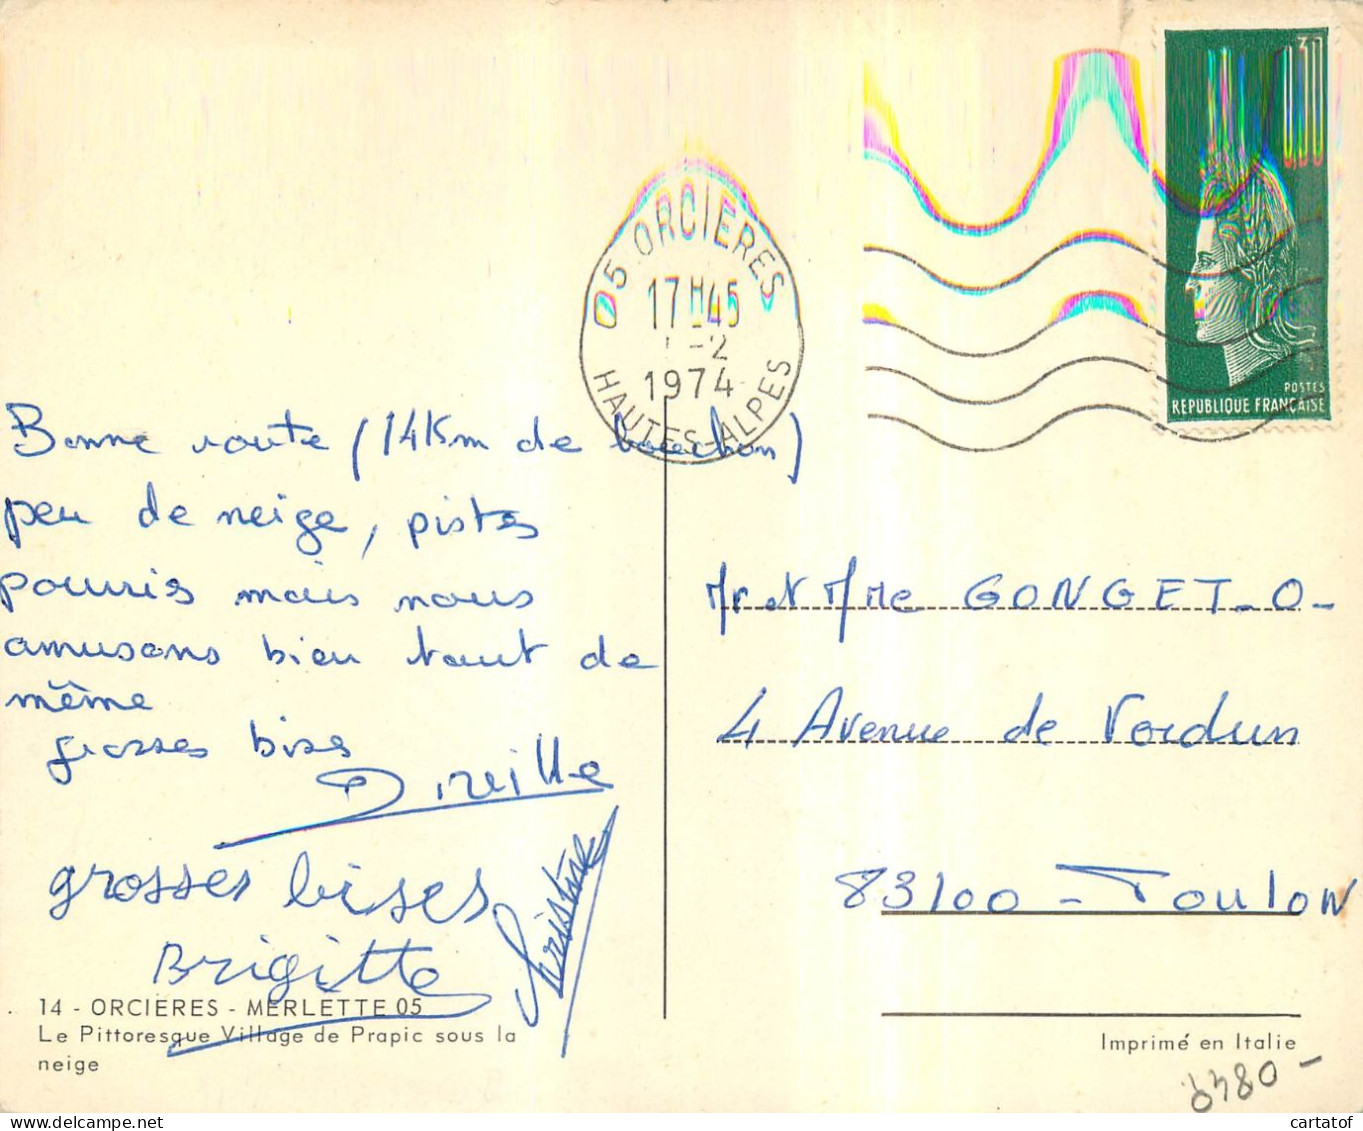 05 ORCIERES
17H45
-2
1974
HAUTES-ALPES
0,30
POSTES
REPUBLIQUE FRANCAISE
Bonne route (14 Km de bouchon)
peu de neige, pistes
pourris mais nous
amusons bien tout de
même
grosses bises
Mireille
grosses bises
Brigitte
Christine
Mr et Mme GONGET-O-
4 Avenue de Verdun
83100 - Toulon
14 - ORCIÈRES - MERLETTE 05
Le Pittoresque Village de Prapic sous la
neige
Imprimé en Italie
cartatof